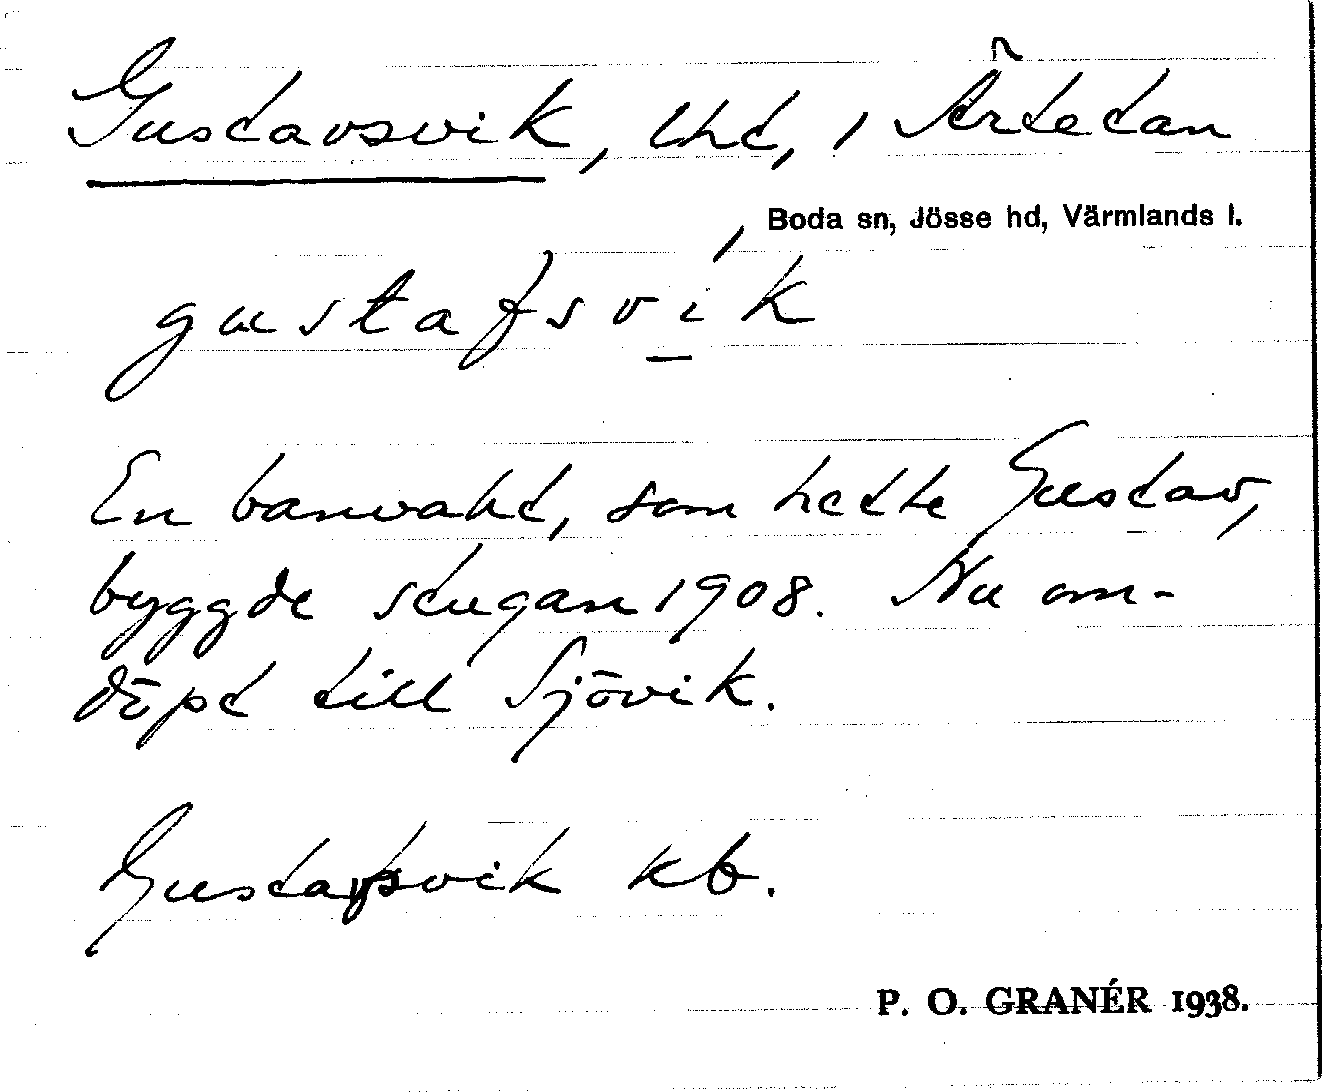 Gustavsvik, lht, i Ärtetan
Boda sn, Jösse hd, Värmlands l.
gustafsvik
En banvakt, som hette Gustav,
byggde stugan 1908. Nu om-
döpt till Sjövik.
Gustafsvik kb.
P. O. GRANÉR 1938.